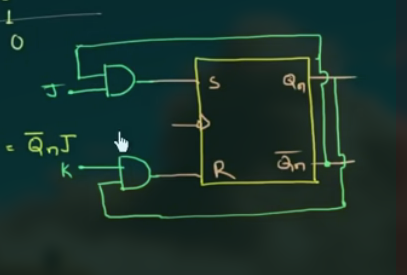 1
0
J
S
Qₙ
= Q̅ₙJ
K
R
Q̅ₙ